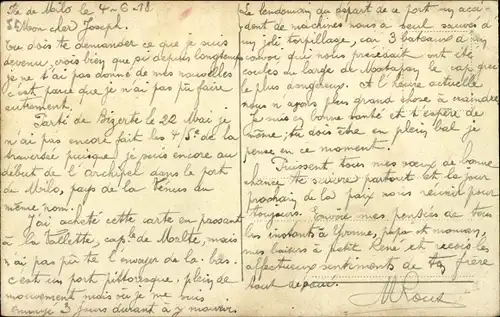 Ile de Milo le 4-6-18
Mon cher Joseph.
Tu dois te demander ce que je suis
devenu, vois bien que si depuis longtemps
je ne t'ai pas donné de mes nouvelles
c'est parce que je n'ai pas pu faire
autrement.
Parti de Bizerte le 22 Mai je
n'ai pas encore fait les 4/5e de la
traversée puisque je suis encore au
début de l'archipel dans le port
de Milo, pays de la Vénus du
même nom.
J'ai acheté cette carte en passant
à la Vallette, cap. de Malte, mais
n'ai pas pu te l'envoyer de la-bas.
c'est un port pittoresque, plein de
mouvement mais où je me suis
ennuyé 3 jours durant à y mourir.
Le lendemain du départ de ce port un acci-
dent de machines nous a seul sauvés d'
un joli torpillage, car 3 bateaux d'un
convoi que nous précédait ont été
coulés au large de Matapan le cap
le plus dangereux. A l'heure actuelle
nous n'avons plus grand chose à craindre
Je suis en bonne santé et t'espère de
même, tu dois être en plein bal je
pense en ce moment.
Puissent tous mes vœux de bonne
chance te suivre partout et la jour
prochain de la paix nous réunir pour
toujours. Envoie mes pensées de tous
les instants à Yvonne, papa et maman,
mes baisers à petit René et reçois les
affectueux sentiments de ton frère
tout dévoué.